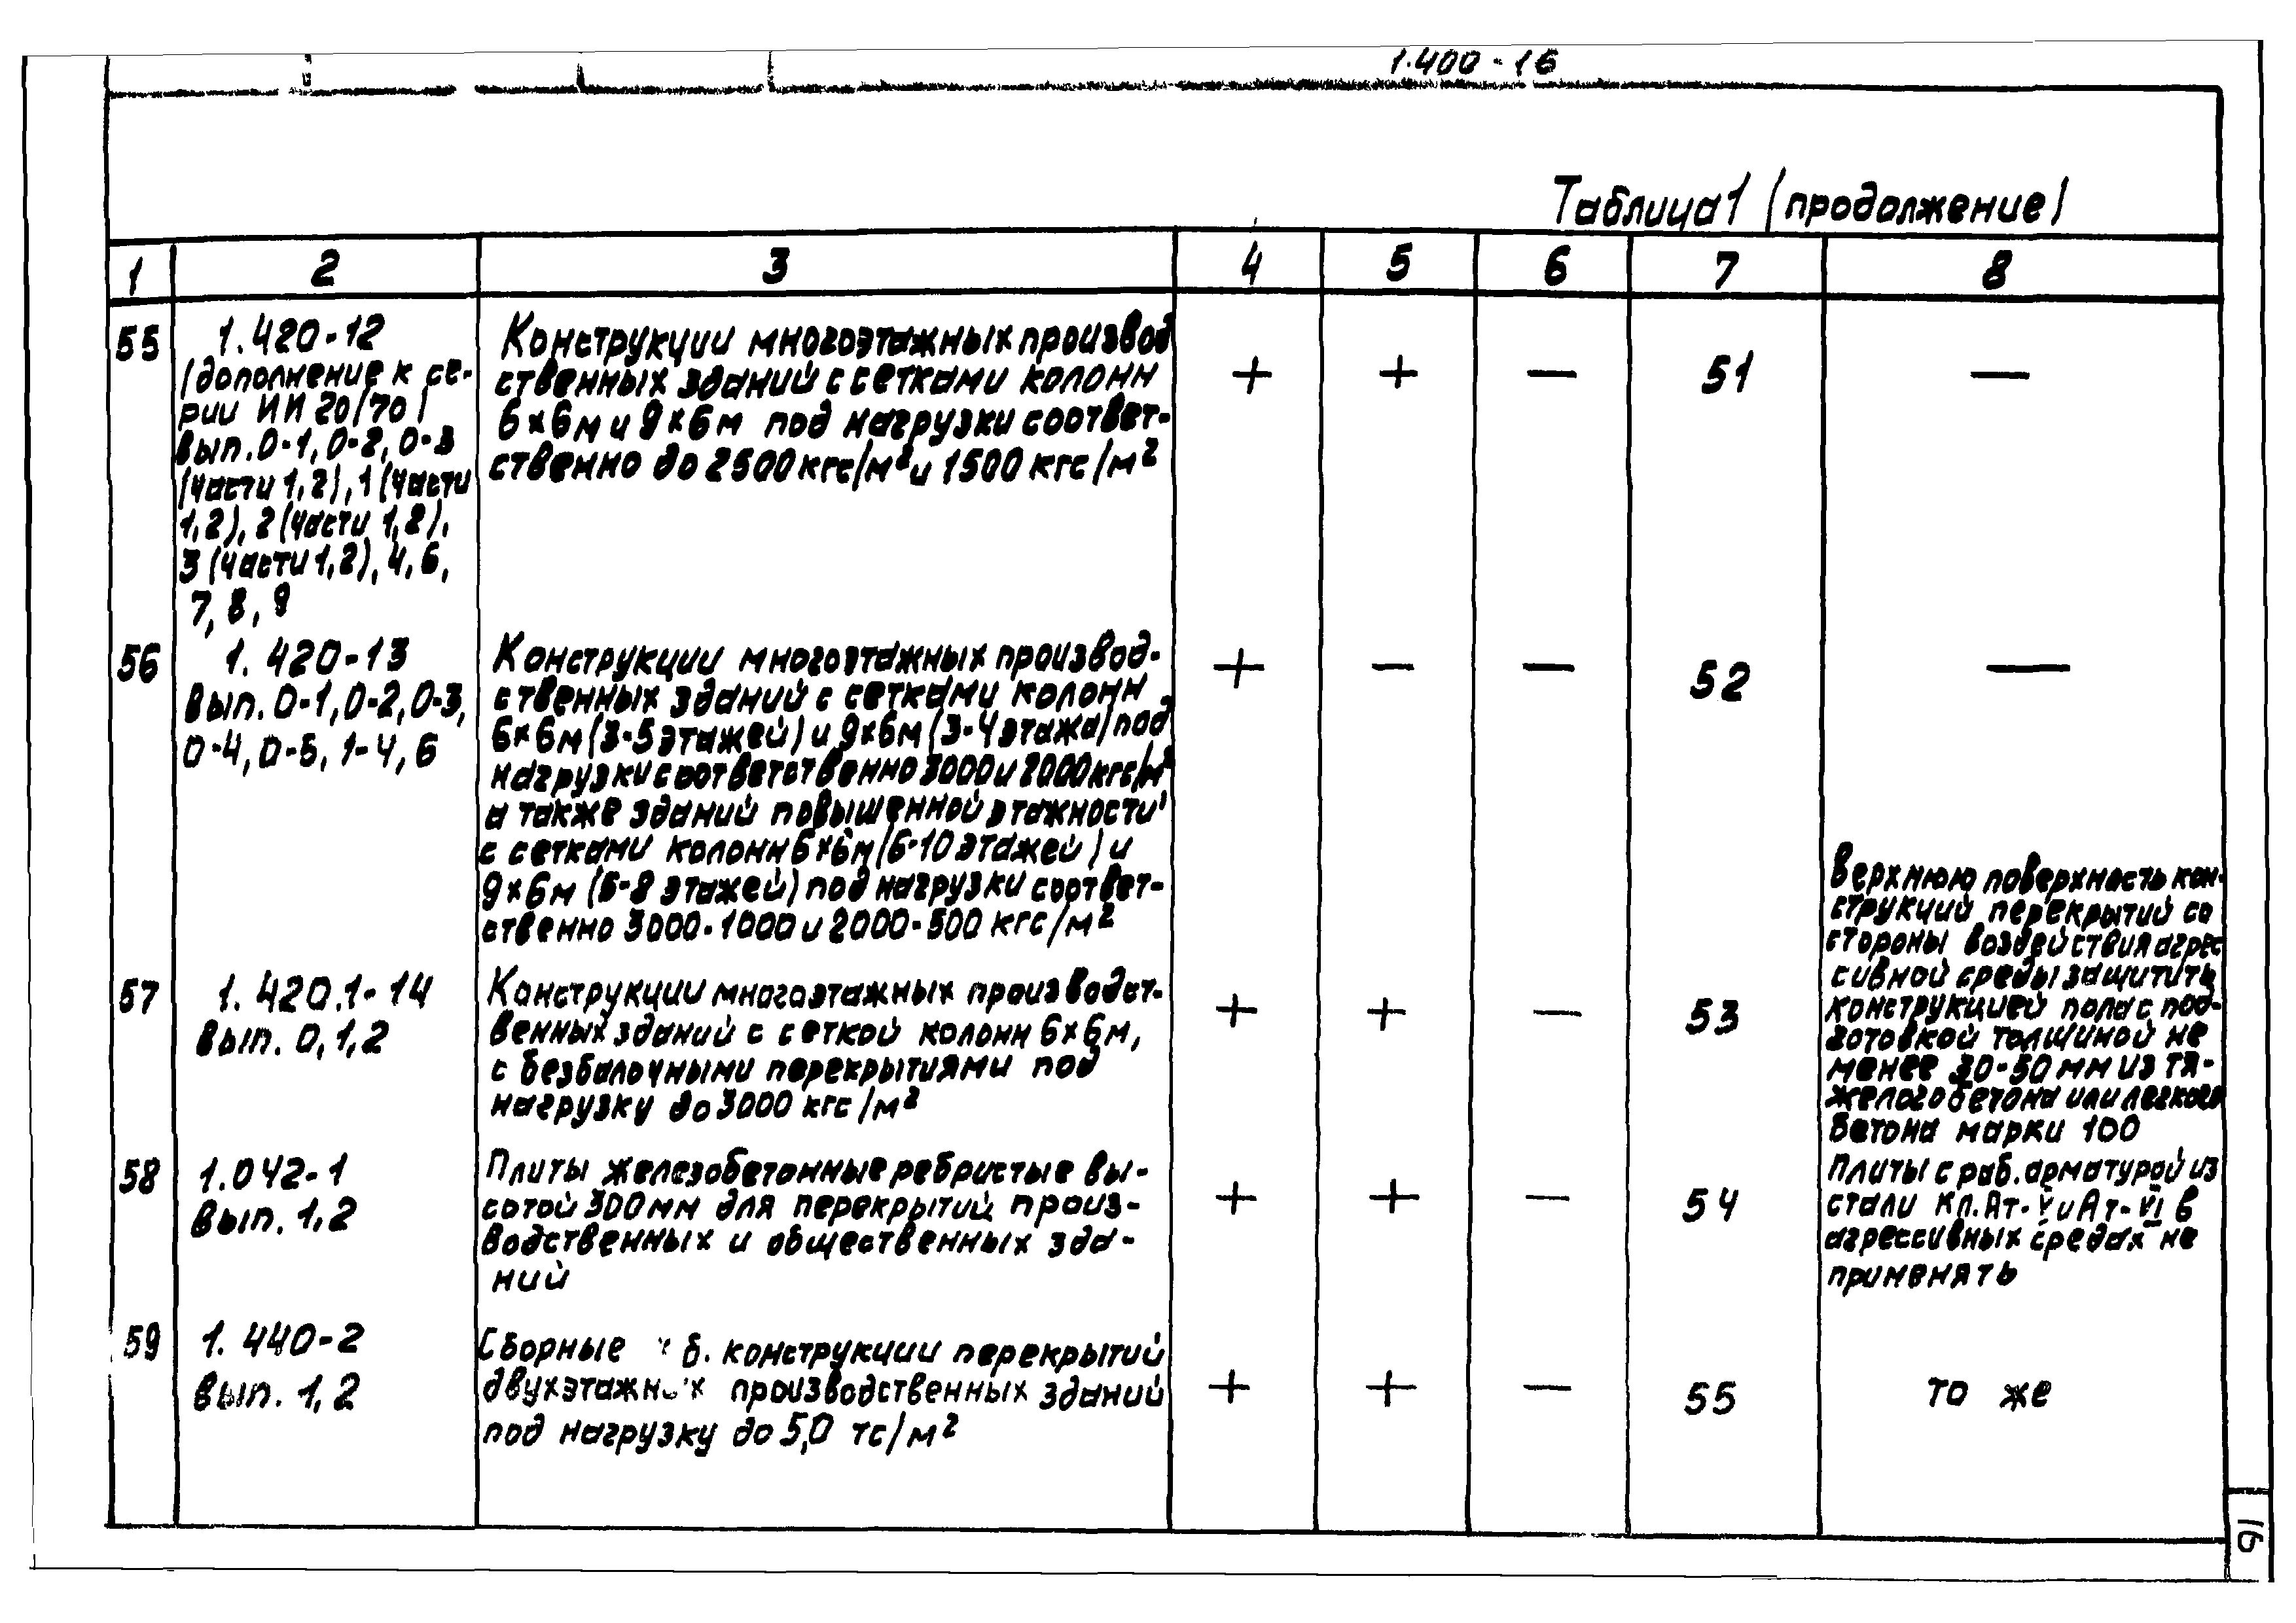 1.400-16
Таблица 1 (продолжение)
1 2 3 4 5 6 7 8
55
1.420-12
(дополнение к се-
рии ИИ 20/70)
вып. 0-1, 0-2, 0-3
(части 1,2), 1 (части
1,2), 2 (части 1,2),
3 (части 1,2), 4, 6,
7, 8, 9
Конструкции многоэтажных производ
ственных зданий с сетками колонн
6×6м и 9×6м под нагрузки соответ-
ственно до 2500 кгс/м² и 1500 кгс/м²
+ + — 51 —
56
1. 420-13
Вып. 0-1, 0-2, 0-3,
0-4, 0-5, 1-4, 6
Конструкции многоэтажных производ-
ственных зданий с сетками колонн
6×6м (3-5 этажей) и 9×6м (3-4 этажа) под
нагрузки соответственно 3000 и 2000 кгс/м²
а также зданий повышенной этажности
с сетками колонн 6×6м (6-10 этажей) и
9×6м (6-8 этажей) под нагрузки соответ-
ственно 3000-1000 и 2000-500 кгс/м²
+ — — 52 —
57
1. 420.1-14
Вып. 0,1,2
Конструкции многоэтажных производст-
венных зданий с сеткой колонн 6×6м,
с безбалочными перекрытиями под
нагрузку до 3000 кгс/м²
+ + — 53
Верхнюю поверхность кон-
струкций перекрытий со
стороны воздействия агрес
сивной среды защитить
конструкцией пола с под-
готовкой толщиной не
менее 30-50 мм из тя-
желого бетона или легкого
бетона марки 100
58
1.042-1
Вып. 1,2
Плиты железобетонные ребристые вы-
сотой 300мм для перекрытий произ-
водственных и общественных зда-
ний
+ + — 54
Плиты с раб. арматурой из
стали Кл. Ат-V и Ат-VI в
агрессивных средах не
применять
59
1. 440-2
вып. 1,2
Сборные б. конструкции перекрытий
двухэтажных производственных зданий
под нагрузку до 5,0 тс/м²
+ + — 55 то же
16